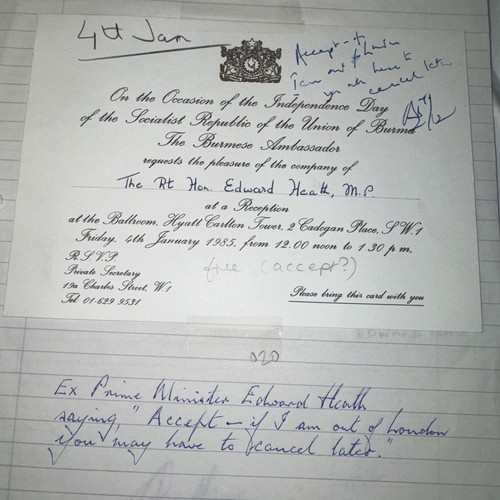 4th Jan
Accept - if
I am out of London
you may have to
cancel later.
On the Occasion of the Independence Day
of the Socialist Republic of the Union of Burma
The Burmese Ambassador
requests the pleasure of the company of
The Rt Hon. Edward Heath, M.P.
at a Reception
at the Ballroom, Hyatt Carlton Tower, 2 Cadogan Place, S.W.1
Friday, 4th January 1985, from 12.00 noon to 1 30 p.m.
free (accept?)
R.S.V.P.
Private Secretary
19a Charles Street, W.1
Tel. 01-629 9531
Please bring this card with you
020
Ex Prime Minister Edward Heath
saying, "Accept – if I am out of London
you may have to cancel later."